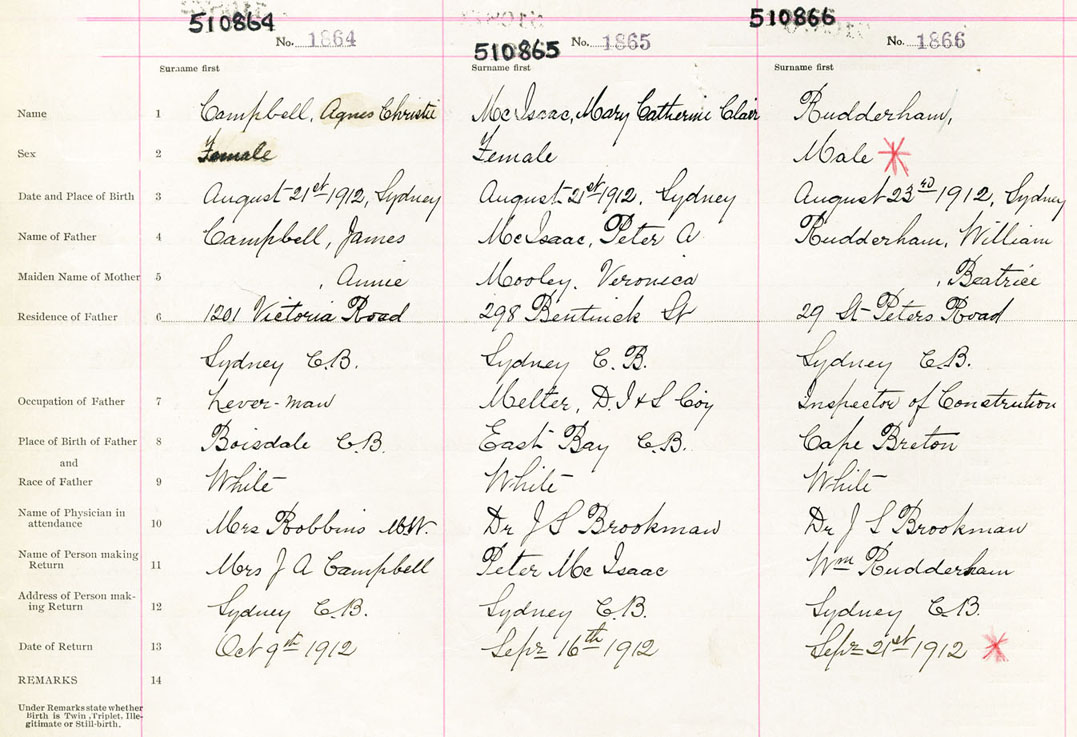 510864 510865 510866
No. 1864 No. 1865 No. 1866
Surname first Surname first Surname first
Name 1 Campbell, Agnes Christie McIsaac, Mary Catherine Clair Rudderham,
Sex 2 Female Female Male
Date and Place of Birth 3 August 21st 1912, Sydney August 21st 1912, Sydney August 23rd 1912, Sydney
Name of Father 4 Campbell, James McIsaac, Peter A Rudderham, William
Maiden Name of Mother 5 , Annie Mooley, Veronica , Beatrice
Residence of Father 6 1201 Victoria Road 298 Bentinick St 29 St Peters Road
Sydney C.B. Sydney C.B. Sydney C.B.
Occupation of Father 7 Lever-man Melter, D. I & S Coy Inspector of Constrution
Place of Birth of Father 8 Boisdale C.B. East Bay C.B. Cape Breton
and
Race of Father 9 White White White
Name of Physician in
attendance 10 Mrs Robbins Dr J S Brookman Dr J S Brookman
Name of Person making
Return 11 Mrs J A Campbell Peter McIsaac Wm Rudderham
Address of Person mak-
ing Return 12 Sydney C.B. Sydney C.B. Sydney C.B.
Date of Return 13 Oct 9th 1912 Sepr 16th 1912 Sepr 21st 1912
REMARKS 14
Under Remarks state whether
Birth is Twin, Triplet, Ille-
gitimate or Still-birth.